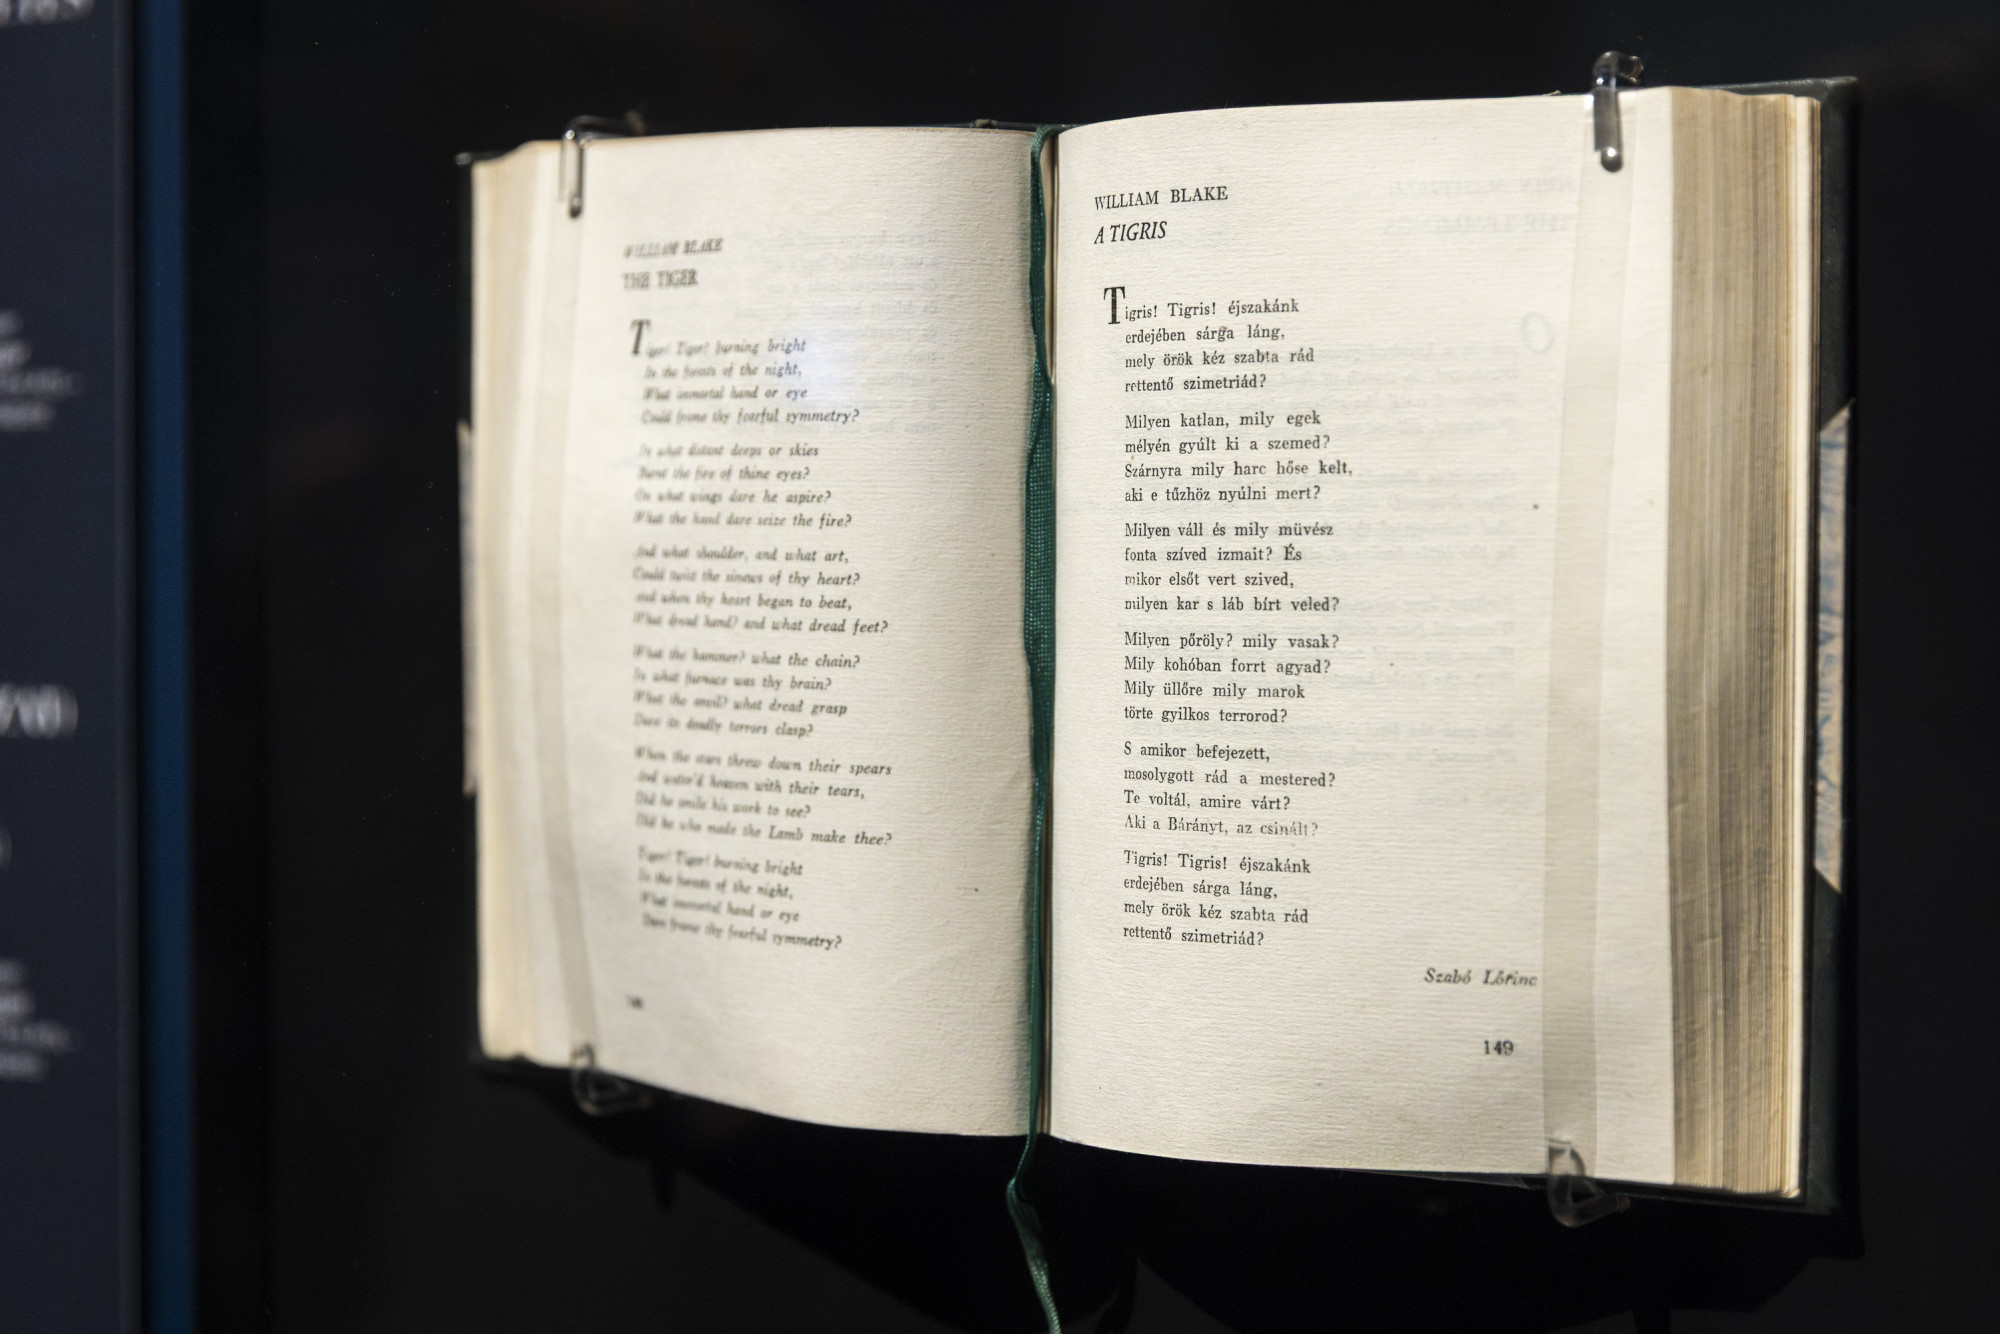 WILLIAM BLAKE
THE TIGER
Tiger! Tiger! burning bright
In the forests of the night,
What immortal hand or eye
Could frame thy fearful symmetry?
In what distant deeps or skies
Burnt the fire of thine eyes?
On what wings dare he aspire?
What the hand dare seize the fire?
And what shoulder, and what art,
Could twist the sinews of thy heart?
And when thy heart began to beat,
What dread hand? and what dread feet?
What the hammer? what the chain?
In what furnace was thy brain?
What the anvil? what dread grasp
Dare its deadly terrors clasp?
When the stars threw down their spears
And water'd heaven with their tears,
Did he smile his work to see?
Did he who made the Lamb make thee?
Tiger! Tiger! burning bright
In the forests of the night,
What immortal hand or eye
Dare frame thy fearful symmetry?
WILLIAM BLAKE
A TIGRIS
Tigris! Tigris! éjszakánk
erdejében sárga láng,
mely örök kéz szabta rád
rettentő szimetriád?
Milyen katlan, mily egek
mélyén gyúlt ki a szemed?
Szárnyra mily harc hőse kelt,
aki e tűzhöz nyúlni mert?
Milyen váll és mily müvész
fonta szíved izmait? És
mikor elsőt vert szived,
milyen kar s láb bírt veled?
Milyen pőröly? mily vasak?
Mily kohóban forrt agyad?
Mily üllőre mily marok
törte gyilkos terrorod?
S amikor befejezett,
mosolygott rád a mestered?
Te voltál, amire várt?
Aki a Bárányt, az csinált?
Tigris! Tigris! éjszakánk
erdejében sárga láng,
mely örök kéz szabta rád
rettentő szimetriád?
Szabó Lőrinc
149